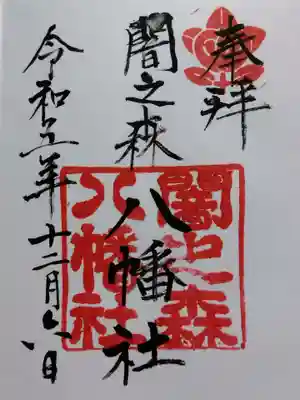 奉拝
闇之森
八幡社
令和五年十二月六日
闇之森
八幡社